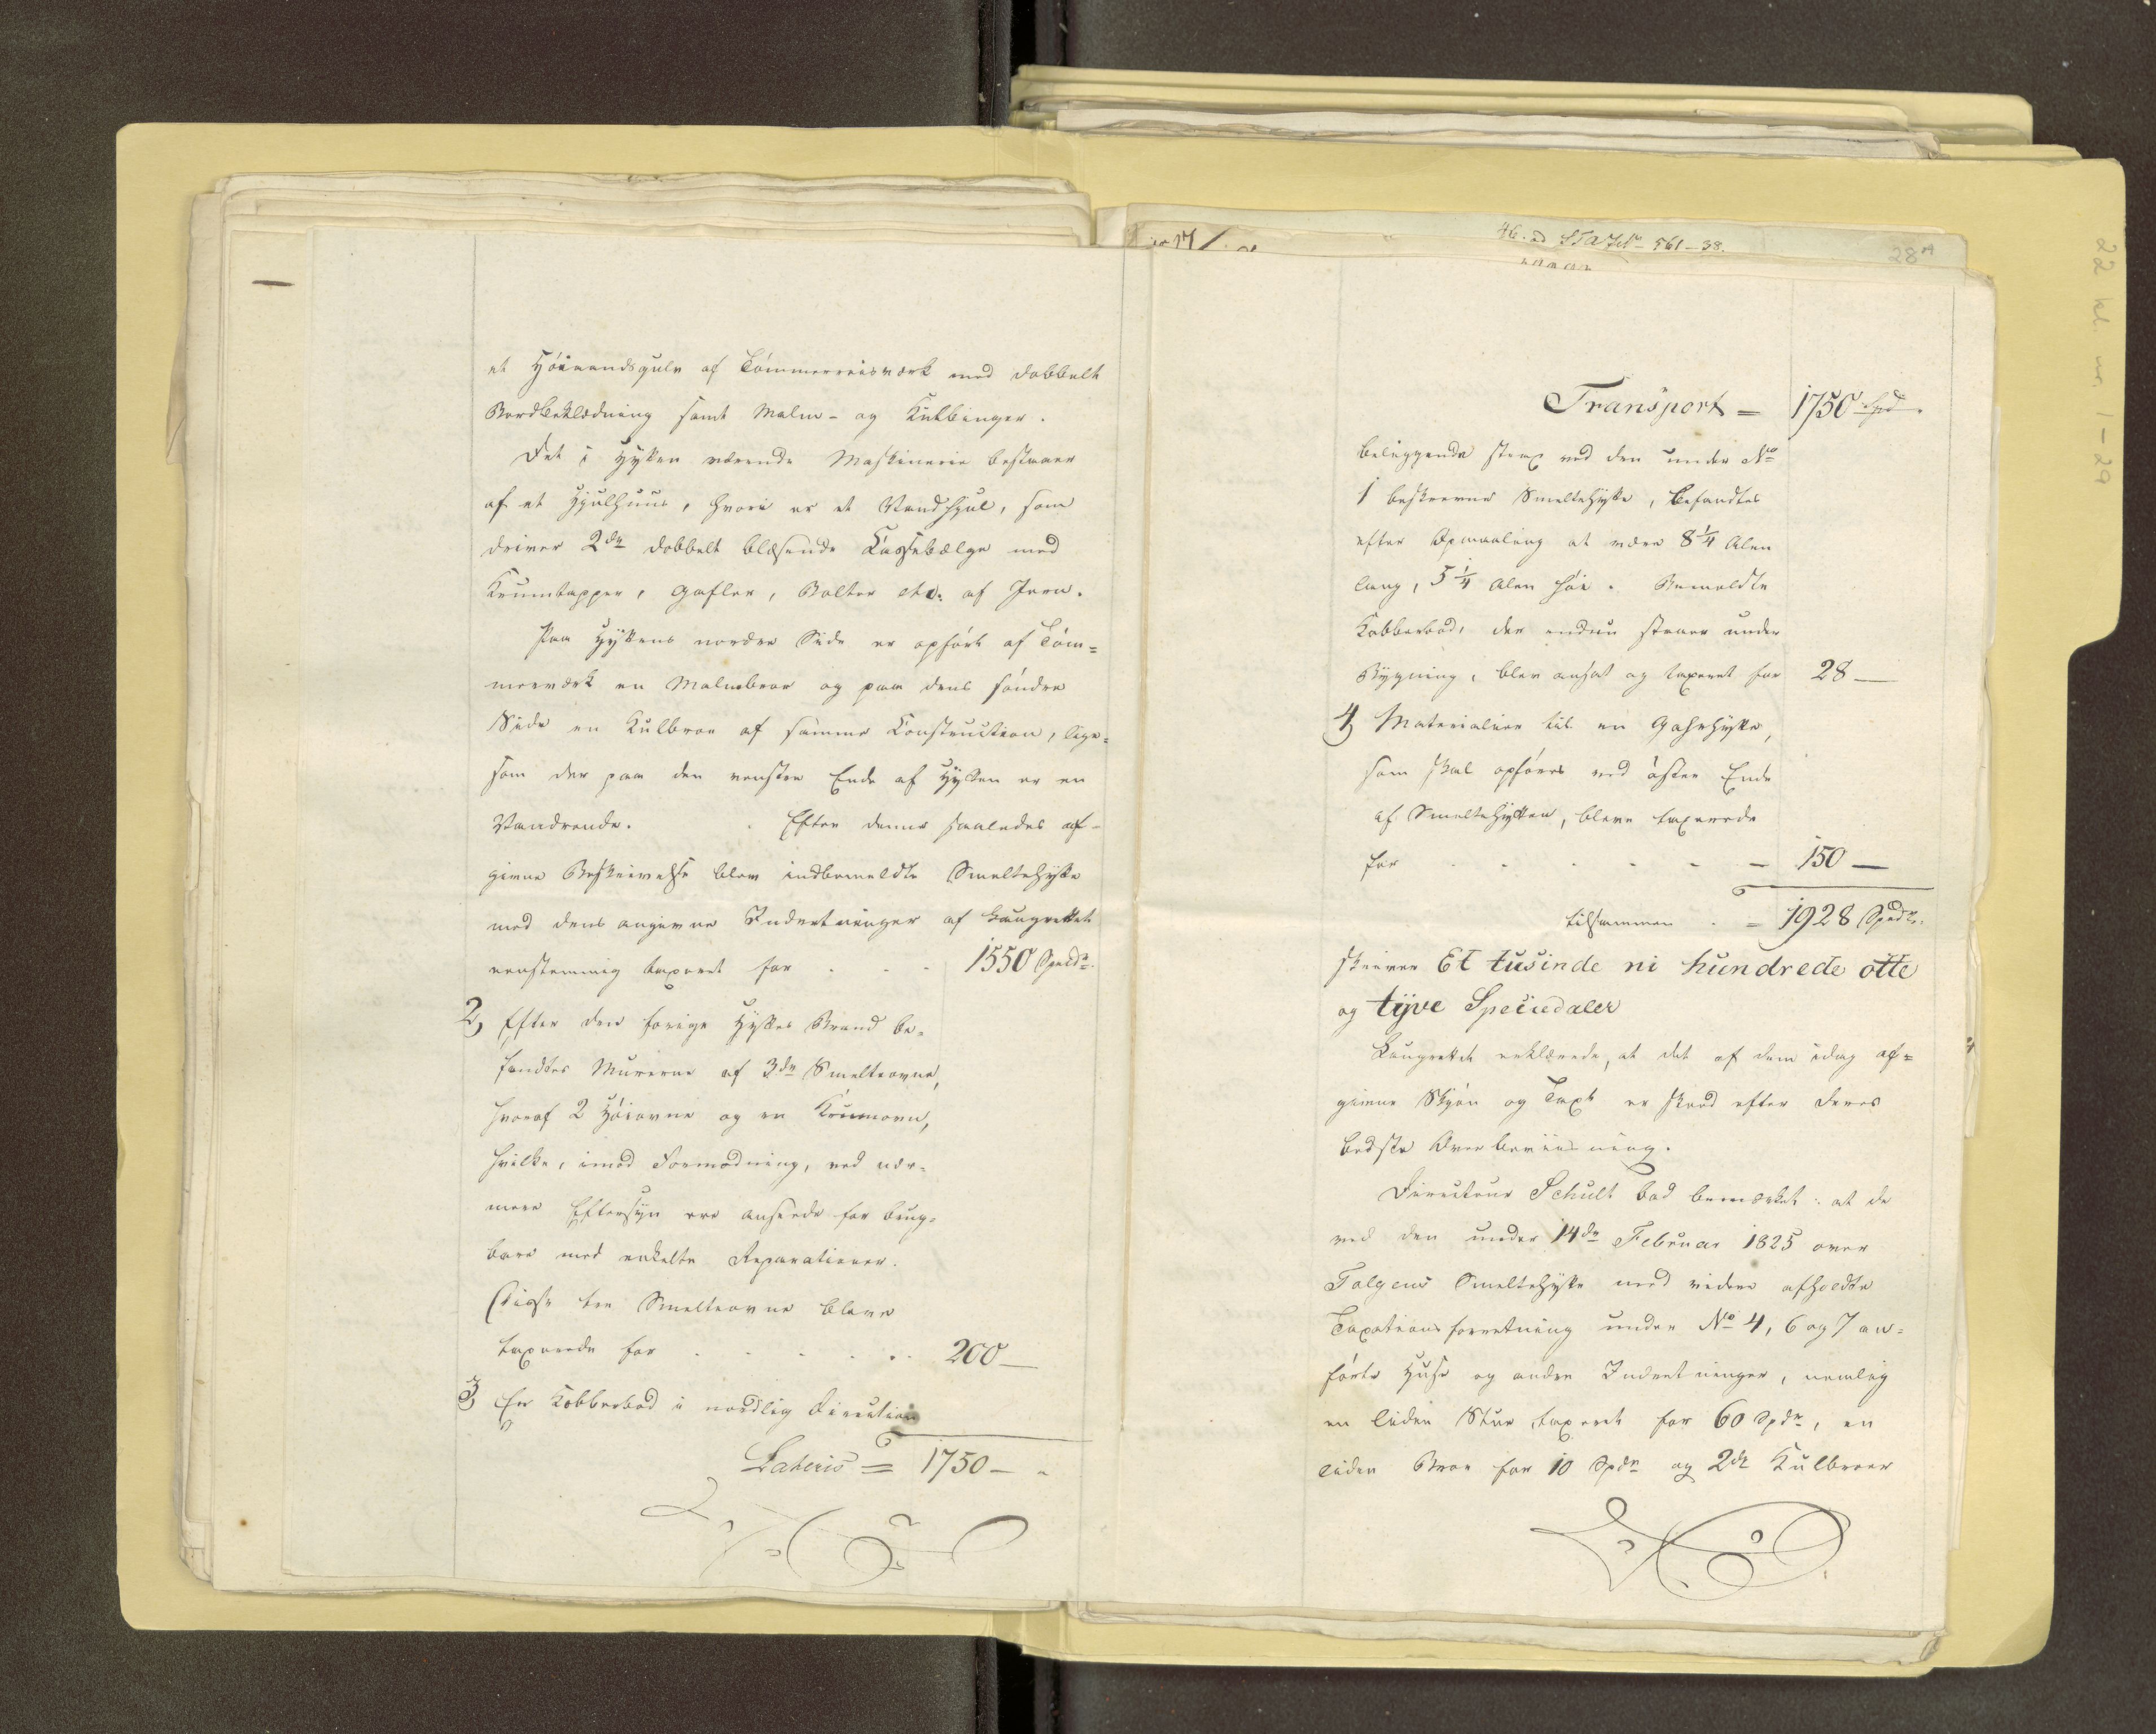 et Höivandsgulv af Tömmerreisværk med dobbelt
Bordbeklædning samt Malm- og Kulbinger.
Det i Hytten værende Maskinerie bestaaer
af et Hjulhuus, hvori er et Vandhjul, som
driver 2de dobbelt blæsende Cassebælge med
Krumtapper, Gafler, Bolter etc. af Jern.
Paa Hyttens nordre Side er opfört af Töm=
merværk en Malmbroe og paa dens söndre
Side en Kulbroe af samme Construction, lige=
som der paa den venstre Ende af Hytten er en
Vandrende. Efter denne saaledes af-
givne Beskrivelse blev indbemeldte Smeltehytte
med dens angivne Indretninger af Laugrettet
eenstemmig taxeret for . . . 1550 Specdr.
2, Efter den forige Hyttes Brand be-
fandtes Murerne af 3de Smelteovne,
hvoraf 2 Höiovne og en Krumovn,
hvilke, imod Formodning, ved nær-
mere Eftersyn ere ansеede for brug-
bare med enkelte Reparationer.
Disse tre Smelteovne bleve
taxerede for . . . . . . 200 —
3, En Kobberbod i nordlig Direction
Lateris = 1750 — -
46. ad 561-38.
28 A
22 kl. nr. 1-29
Transport = 1750 Spd.
beliggende strax ved den under No
1 beskrevne Smeltehytte, befandtes
efter Opmaaling at være 8 1/4 Alen
lang, 5 1/4 Alen höi. Bemeldte
Kobberbod, der endnu staaer under
Bygning, blev ansat og taxeret for 28 —
4, Materialier til en Gahrhytte,
som skal opföres ved östre Ende
af Smeltehytten, bleve taxerede
for . . . . - — 150 —
tilsammen . = 1928 Spdr.
skriver Et tusinde ni hundrede otte
og tyve Speciedaler
Laugrettet erklærede, at det af dem idag af=
givne Skjön og Taxt er skeed efter deres
bedste Overbeviisning.
Directeur Schult bad bemærket: at de
ved den under 14de Februar 1825 over
Folgens Smeltehytte med videre afholdte
Taxationsforretning under No 4, 6 og 7 an=
förte Huse og andre Indretninger, nemlig
en liden Stue taxeret for 60 Spdr, en
liden Broe for 10 Spdr og 2de Kulbroer